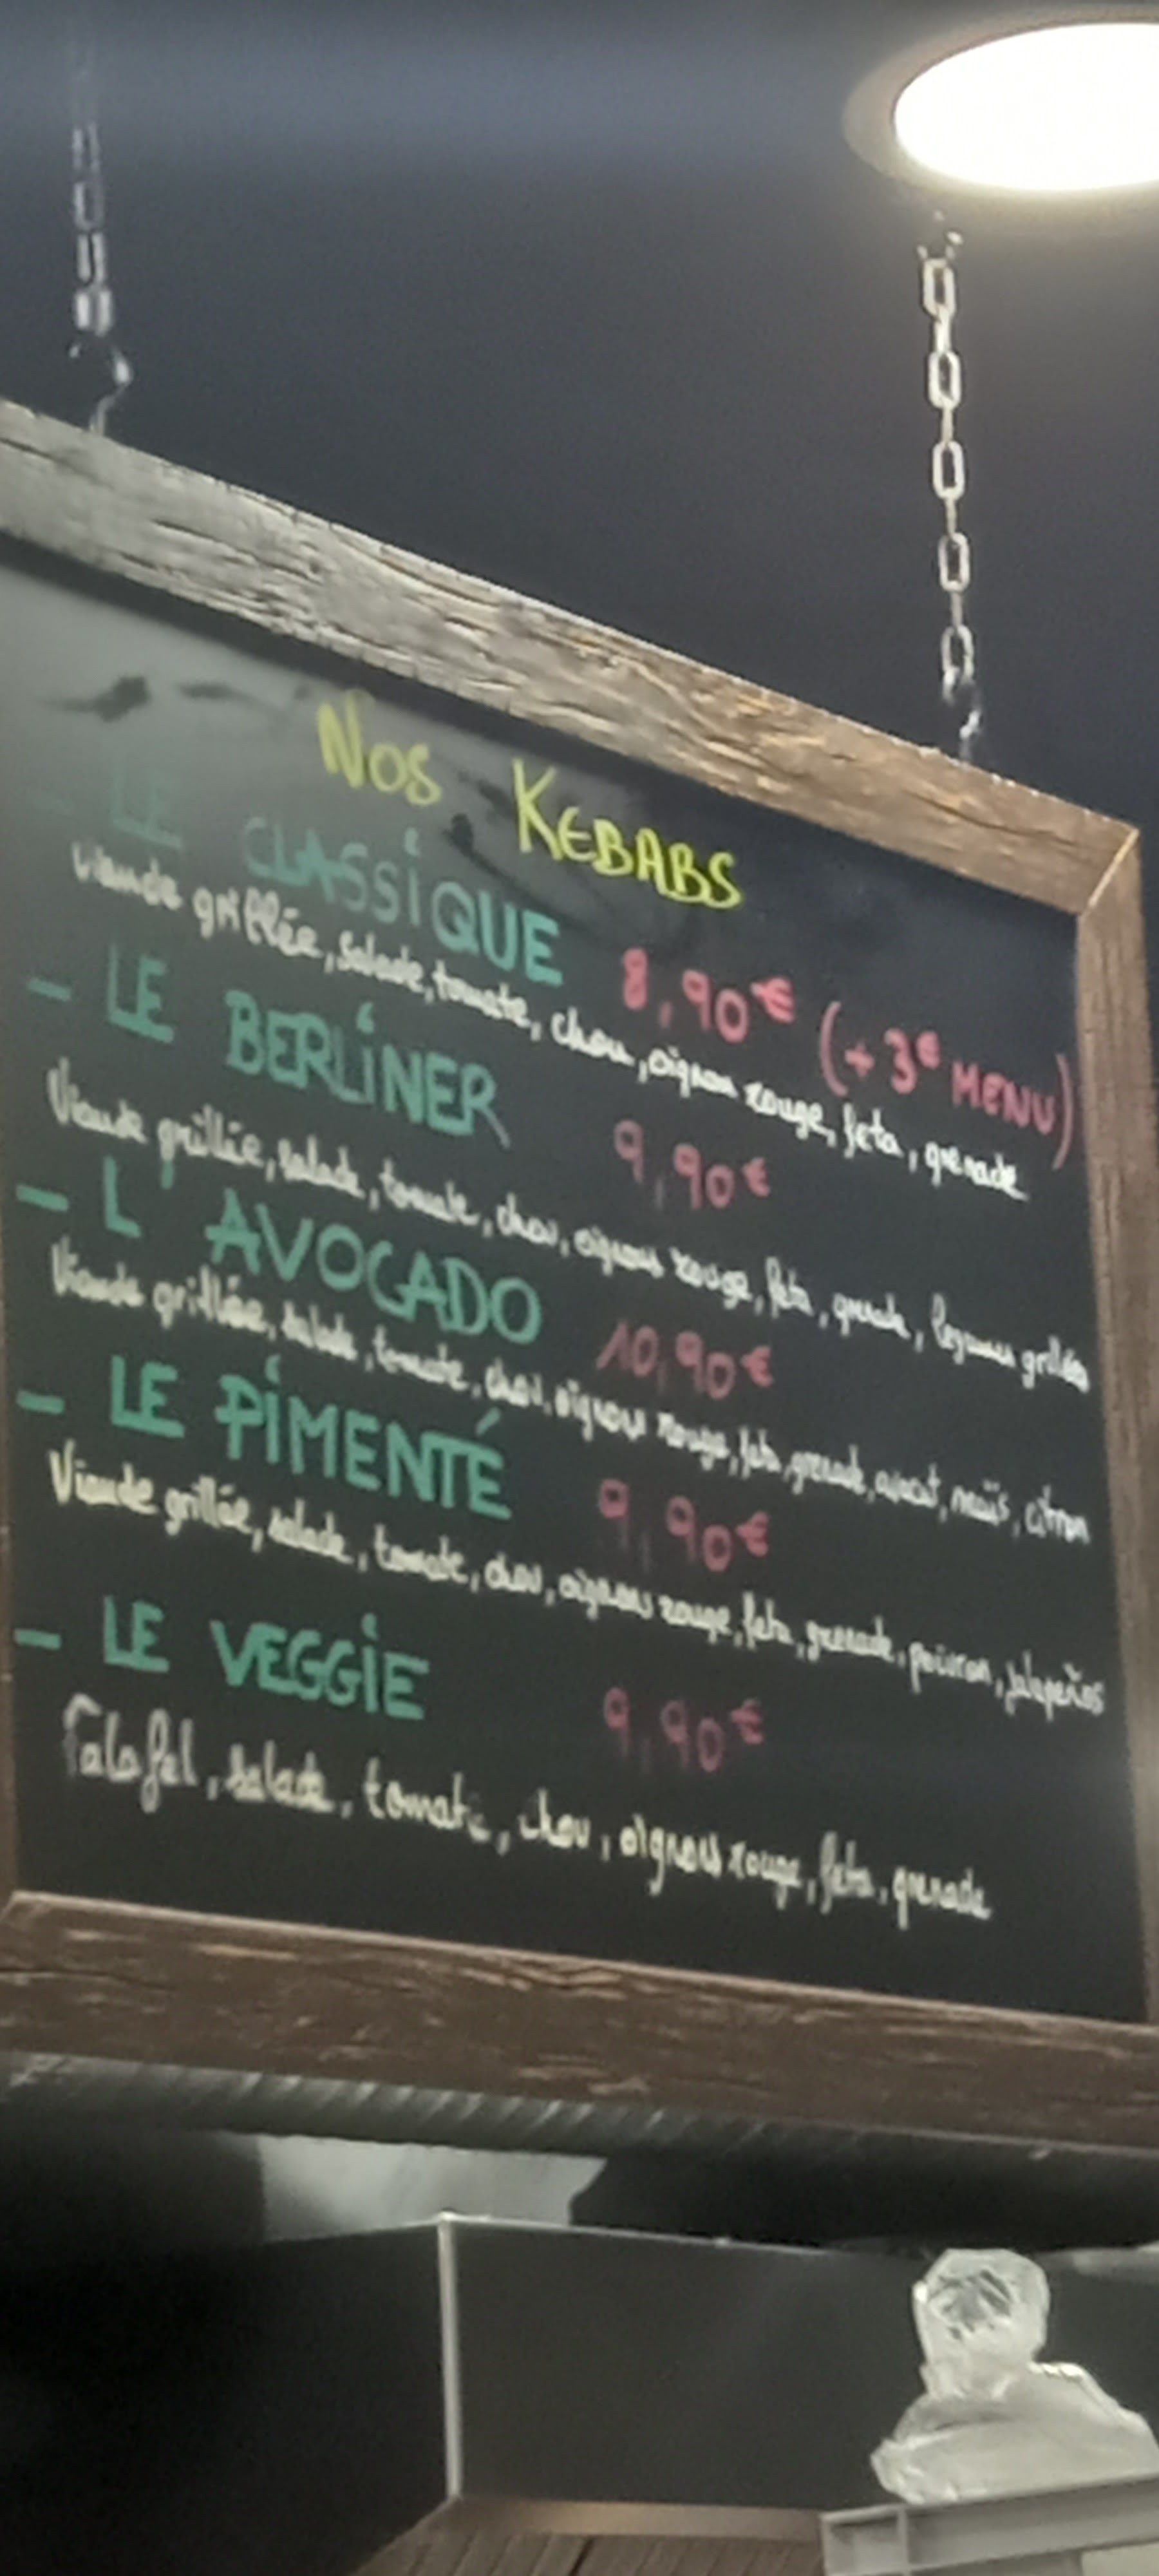 Nos KEBABS
- LE CLASSiQUE 8,90€ (+ 3€ MENU)
Viande grillée, salade, tomate, chou, oignon rouge, feta, grenade
- LE BERLiNER 9,90€
Viande grillée, salade, tomate, chou, oignons rouge, feta, grenade, légumes grillés
- L' AVOCADO 10,90€
Viande grillée, salade, tomate, chou, oignons rouge, feta, grenade, avocat, maïs, citron
- LE PiMENTÉ 9,90€
Viande grillée, salade, tomate, chou, oignons rouge, feta, grenade, poivron, jalapeños
- LE VEGGiE 9,90€
Falafel, salade, tomate, chou, oignons rouge, feta, grenade